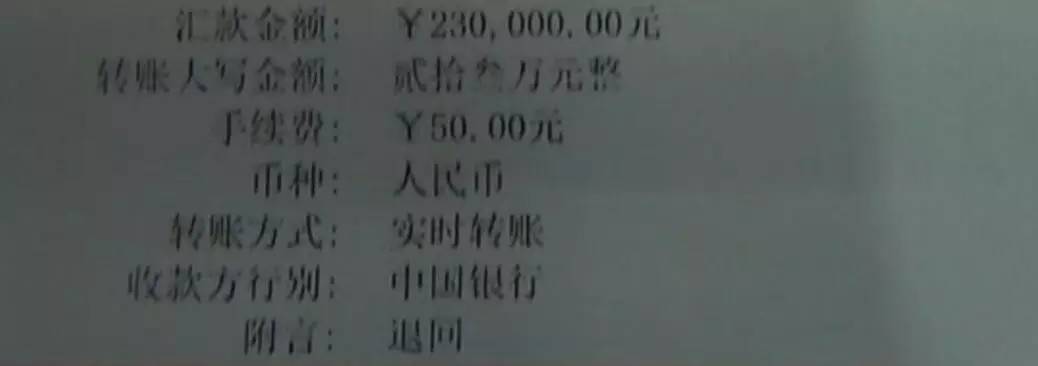 汇款金额: ￥230,000.00元
转账大写金额: 贰拾叁万元整
手续费: ￥50.00元
币种: 人民币
转账方式: 实时转账
收款方行别: 中国银行
附言: 退回